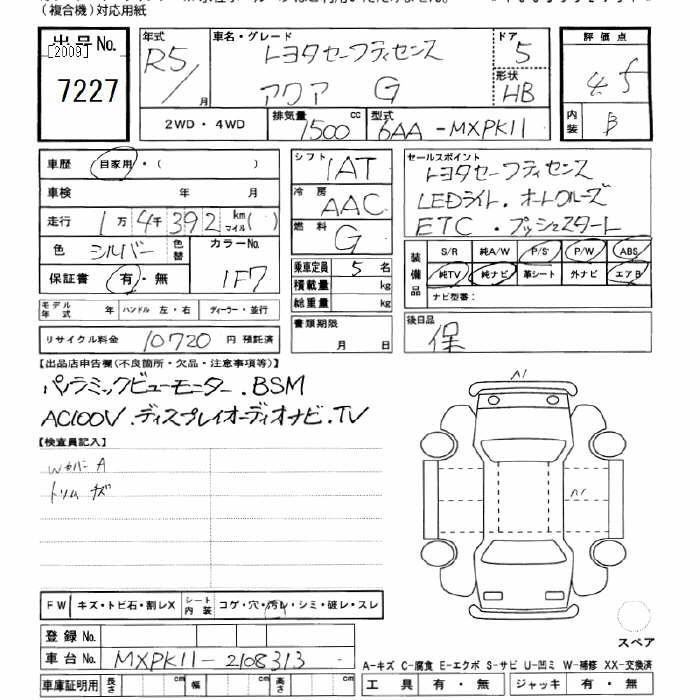 (複合機)対応用紙
出品No.
[2009]
7227
年式 R5/ 月
車名・グレード トヨタセーフティセンス
アクア G
ドア 5
形状 HB
評価点 4.5
内装 B
2WD・4WD
排気量 1500 cc
型式 6AA-MXPK11
車歴 自家用・( )
車検 年 月
走行 1万4千392 km マイル( )
色 シルバー 色替 カラーNo. 1F7
保証書 有・無
モデル年式 年 ハンドル 左・右 ディーラー・並行
リサイクル料金 10720 円 預託済
シフト 1AT
冷房 AAC
燃料 G
乗車定員 5 名
積載量 kg
総重量 kg
書類期限 月 日
セールスポイント
トヨタセーフティセンス
LEDライト・オートクルーズ
ETC・プッシュスタート
装備品 S/R 純A/W P/S P/W ABS
純TV 純ナビ 革シート 外ナビ エアB
ナビ型番:
後日品
保
【出品店申告欄(不良箇所・欠品・注意事項等)】
パノラミックビューモニター.BSM
AC100V.ディスプレイオーディオナビ.TV
【検査員記入】
Wカバー A
トリム キズ
A1
A1
FW キズ・トビ石・割レX シート内装 コゲ・穴・汚レ・シミ・破レ・スレ
スペア
登録No.
車台No. MXPK11-2108313
A-キズ C-腐食 E-エクボ S-サビ U-凹ミ W-補修 XX-交換済
車庫証明用 長さ cm 幅 cm 高さ cm 工具 有・無 ジャッキ 有・無